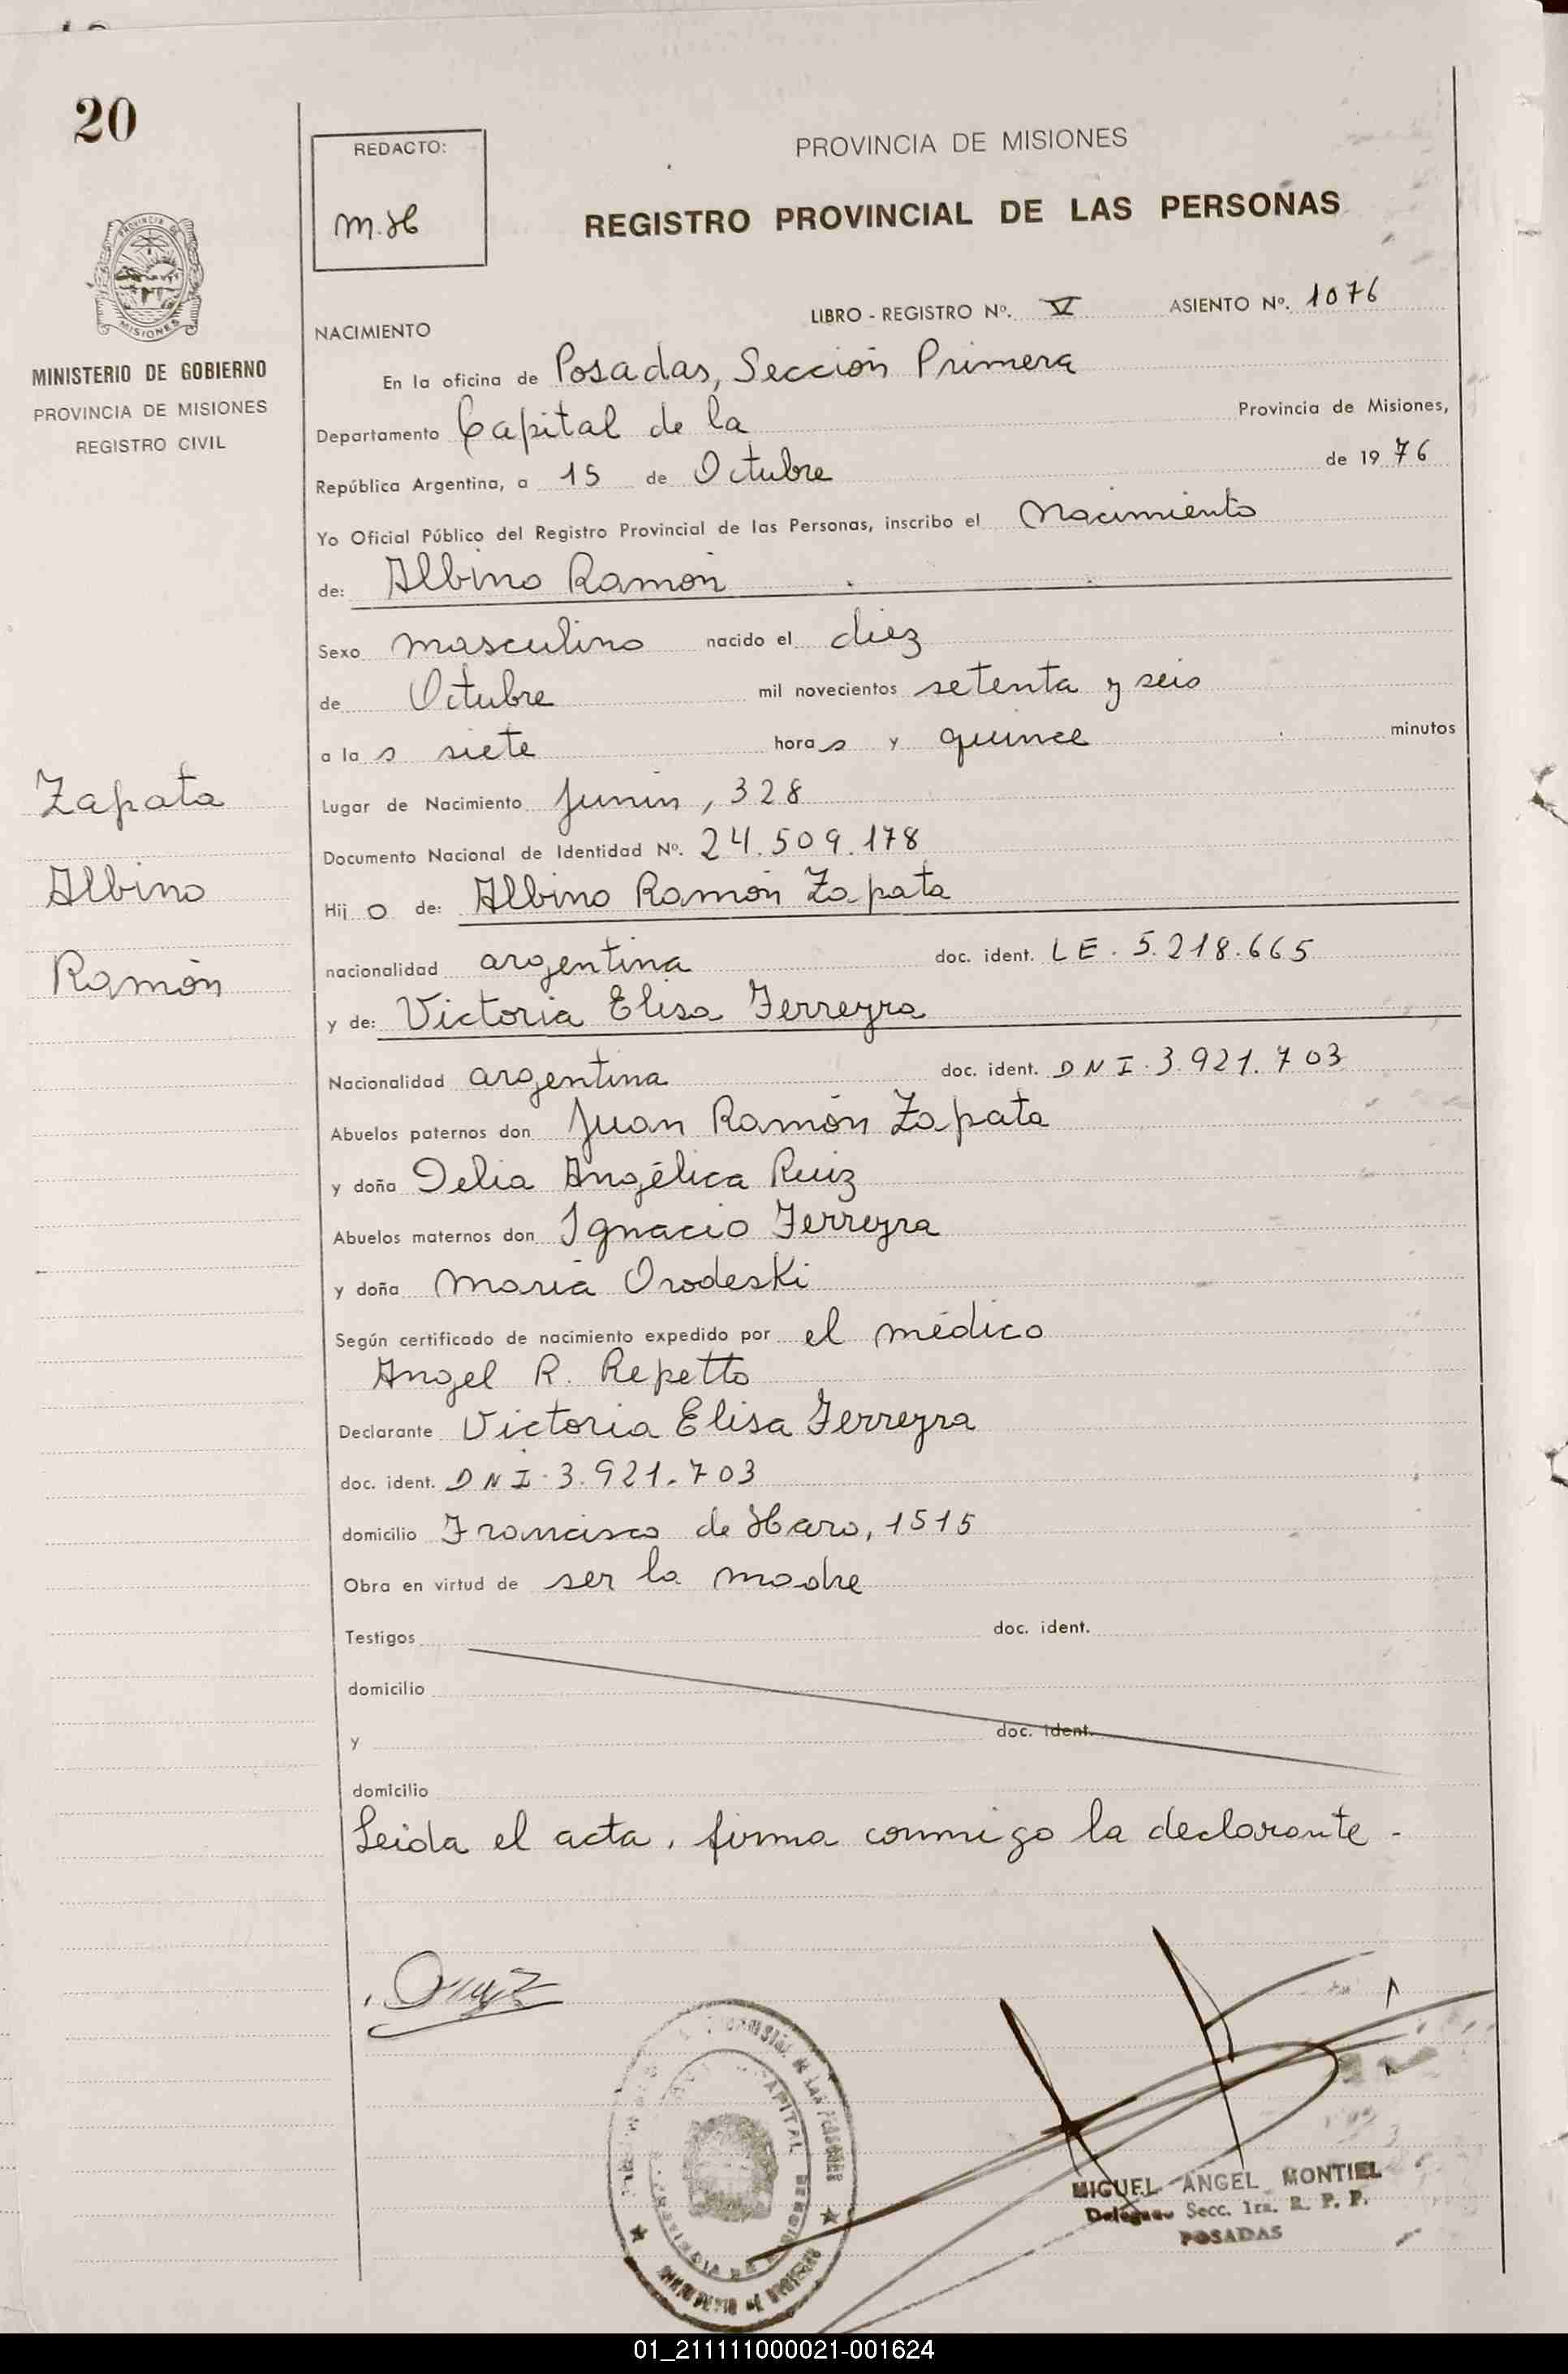 20
REDACTO:
M.H
PROVINCIA DE MISIONES
REGISTRO PROVINCIAL DE LAS PERSONAS
MISIONES
MINISTERIO DE GOBIERNO
PROVINCIA DE MISIONES
REGISTRO CIVIL
NACIMIENTO LIBRO - REGISTRO Nº. V ASIENTO Nº. 1076
En la oficina de Posadas, Sección Primera
Departamento Capital de la Provincia de Misiones,
República Argentina, a 15 de Octubre de 19 76
Yo Oficial Público del Registro Provincial de las Personas, inscribo el Nacimiento
de: Albino Ramón
Sexo masculino nacido el diez
de Octubre mil novecientos setenta y seis
a la s siete hora s y quince minutos
Zapata
Albino
Ramón
Lugar de Nacimiento Junín, 328
Documento Nacional de Identidad Nº. 24.509.178
Hij o de: Albino Ramón Zapata
nacionalidad argentina doc. ident. LE. 5.218.665
y de: Victoria Elisa Ferreyra
Nacionalidad argentina doc. ident. DNI. 3.921.703
Abuelos paternos don Juan Ramón Zapata
y doña Delia Angélica Ruiz
Abuelos maternos don Ignacio Ferreyra
y doña María Orodeski
Según certificado de nacimiento expedido por el médico
Angel R. Repetto
Declarante Victoria Elisa Ferreyra
doc. ident. DNI. 3.921.703
domicilio Francisco de Haro, 1515
Obra en virtud de ser la madre
Testigos doc. ident.
domicilio
y doc. ident.
domicilio
Leida el acta, firma conmigo la declarante.
CAPITAL
MIGUEL ANGEL MONTIEL
Delegado Secc. 1ra. R. P. P.
POSADAS
01_211111000021-001624